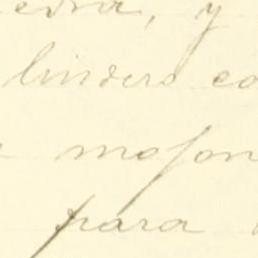 edra, y
lindero co
mojon
para